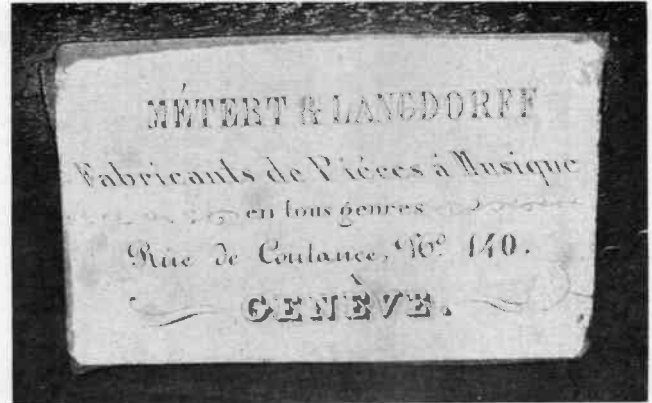 MÉTERT & LANGDORFF
Fabricants de Piéces à Musique
en tous genres
Rue de Coutance, Nº. 140.
À
GENÈVE.